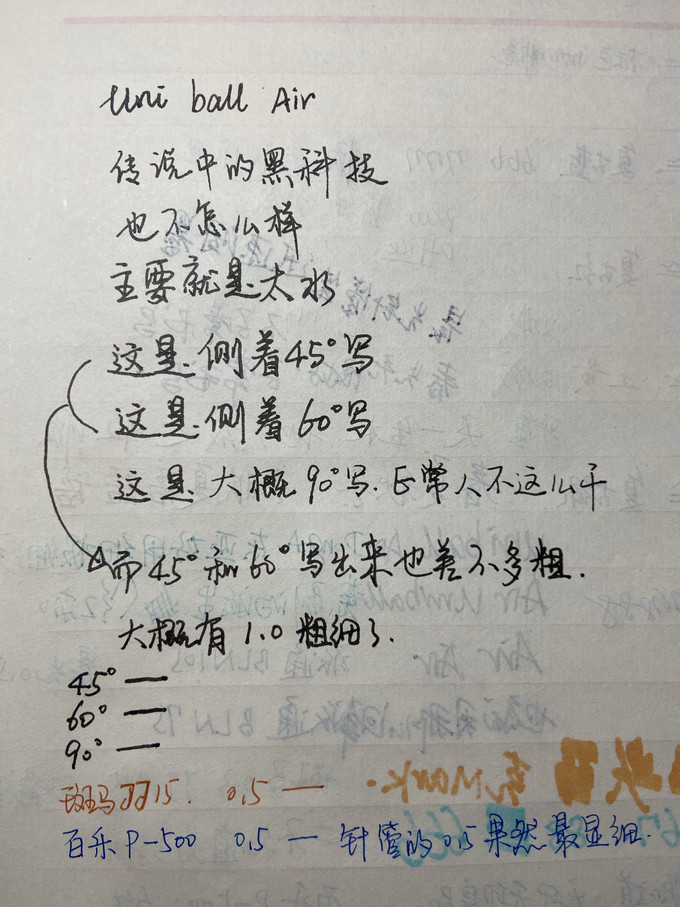 uni ball Air
传说中的黑科技
也不怎么样
主要就是太水
这是侧着45°写
这是侧着60°写
这是大概90°写.正常人不这么干
而45°和60°写出来也差不多粗.
大概有1.0粗细了.
45° —
60° —
90° —
斑马JJ15. 0.5 —
百乐P-500 0.5 — 针管的0.5果然最显细.